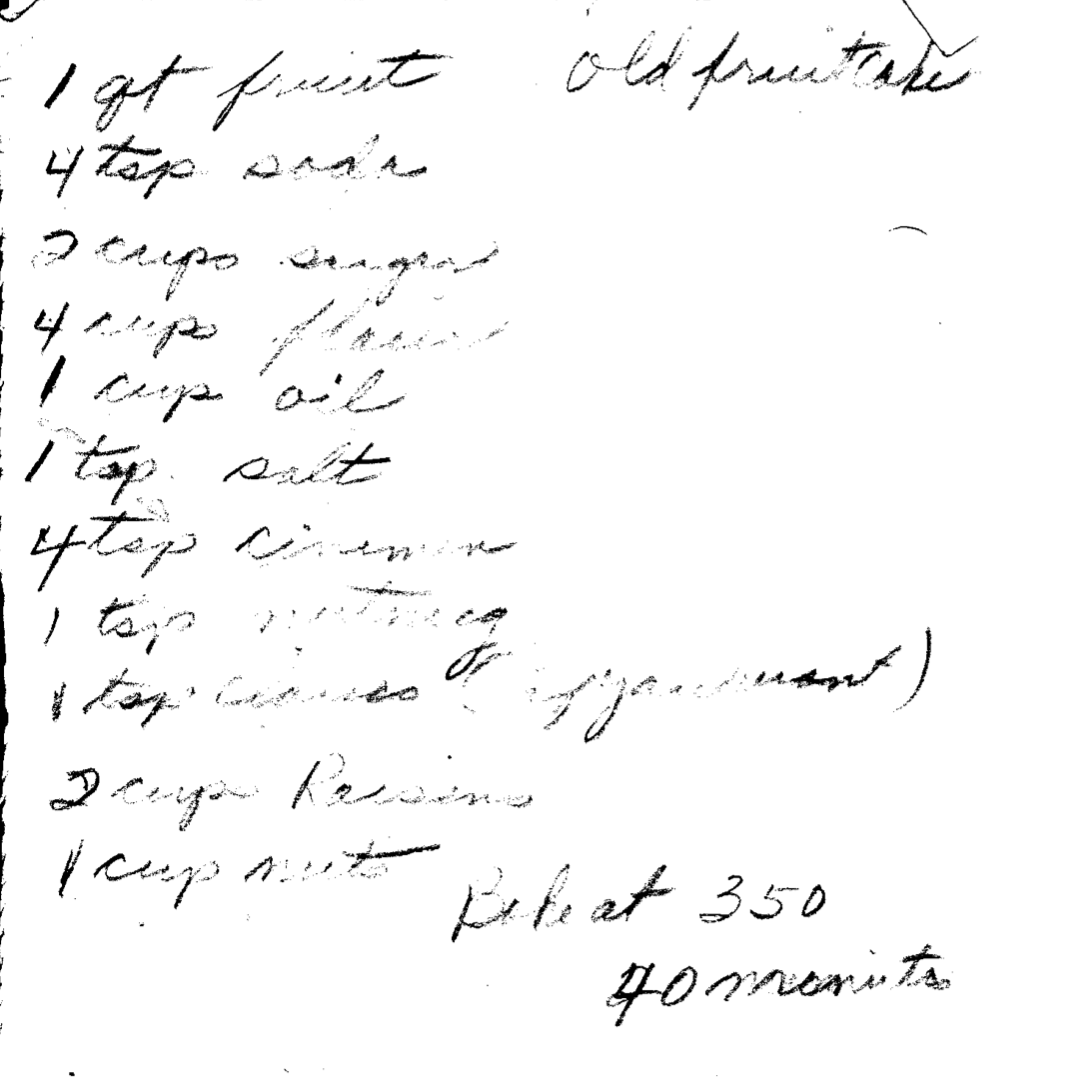 1 qt fruit old fruitcake
4 tsp soda
2 cups sugar
4 cups flour
1 cup oil
1 tsp. salt
4 tsp cinemon
1 tsp nutmeg
1 tsp cloves (if you want)
2 cups Raisins
1 cup nuts
Bake at 350
40 monuts